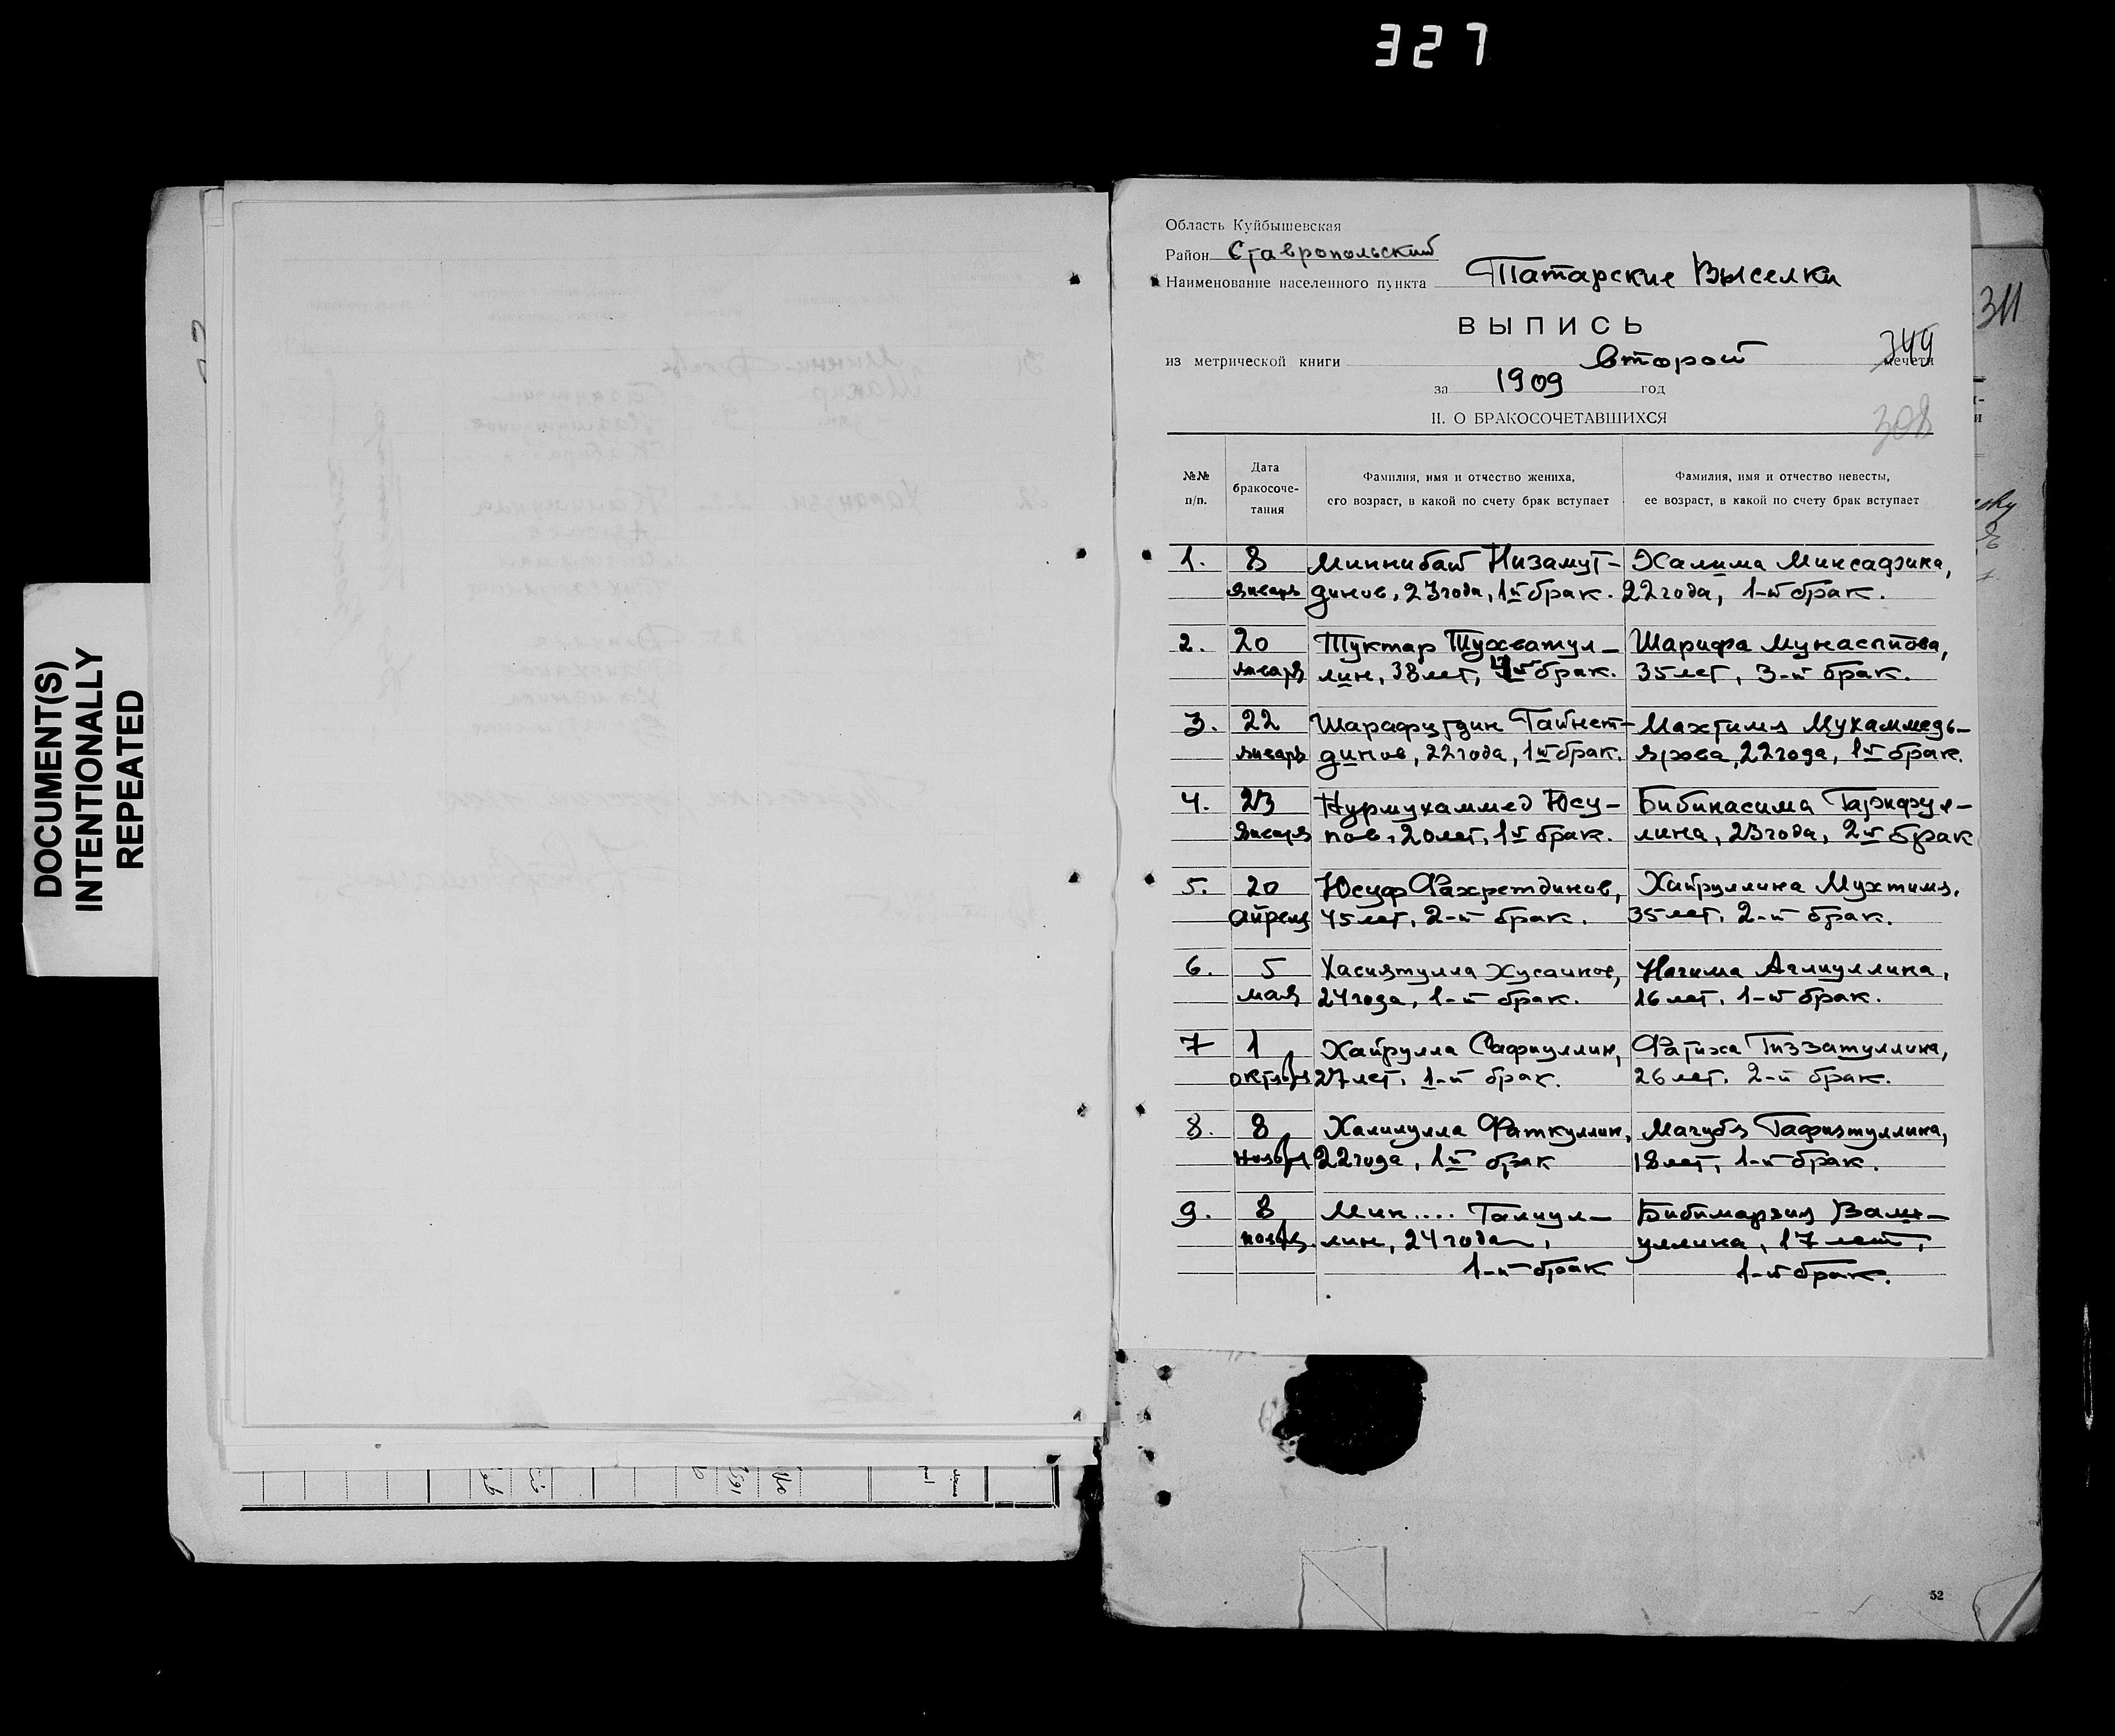 327
DOCUMENT(S)
INTENTIONALLY
REPEATED
Область Куйбышевская
Район Ставропольский
Наименование населенного пункта Татарские Выселки
ВЫПИСЬ
344
из метрической книги второй мечети
за 1909 год
II. О БРАКОСОЧЕТАВШИХСЯ
308
311
№№ п/п.
Дата бракосоче-тания
Фамилия, имя и отчество жениха,
его возраст, в какой по счету брак вступает
Фамилия, имя и отчество невесты,
ее возраст, в какой по счету брак вступает
1. 8 Миннибай Низамут- Халима Миксадзина,
января динов, 23 года, 1й брак. 22 года, 1-й брак.
2. 20 Туктар Тухватул- Шарифа Мунасыпова,
января лин, 38 лет, брак. 35 лет, 3-й брак.
3. 22 Шарафутдин Гайнет- Махтимя Мухаммедь-
января динов, 22 года, 1й брак. ярова, 22 года, 1й брак.
4. 23 Нурмухаммед Юсу- Бибинасима Гарифул-
января пов, 20 лет, 1й брак. лина, 23 года, 2й брак
5. 20 Юсуф Фахретдинов, Хайруллина Мухтимя,
апреля 45 лет, 2-й брак. 35 лет, 2-й брак.
6. 5 Хасиятулла Хусаинов, Нагима Аглиуллина,
мая 24 года, 1-й брак. 16 лет, 1-й брак.
7 1 Хайрулла Сафиуллин, Фатиха Гиззатуллина,
октября 27 лет, 1-й брак. 26 лет, 2-й брак.
8. 8 Халиулла Фаткуллин, Магубя Гафиятуллина,
ноября 22 года, 1й брак 18 лет, 1-й брак.
9. 8 Мин.... Галиул- Бибимарзия Вали-
ноября. лин, 24 года, уллина, 17 лет,
1-й брак 1-й брак.
52